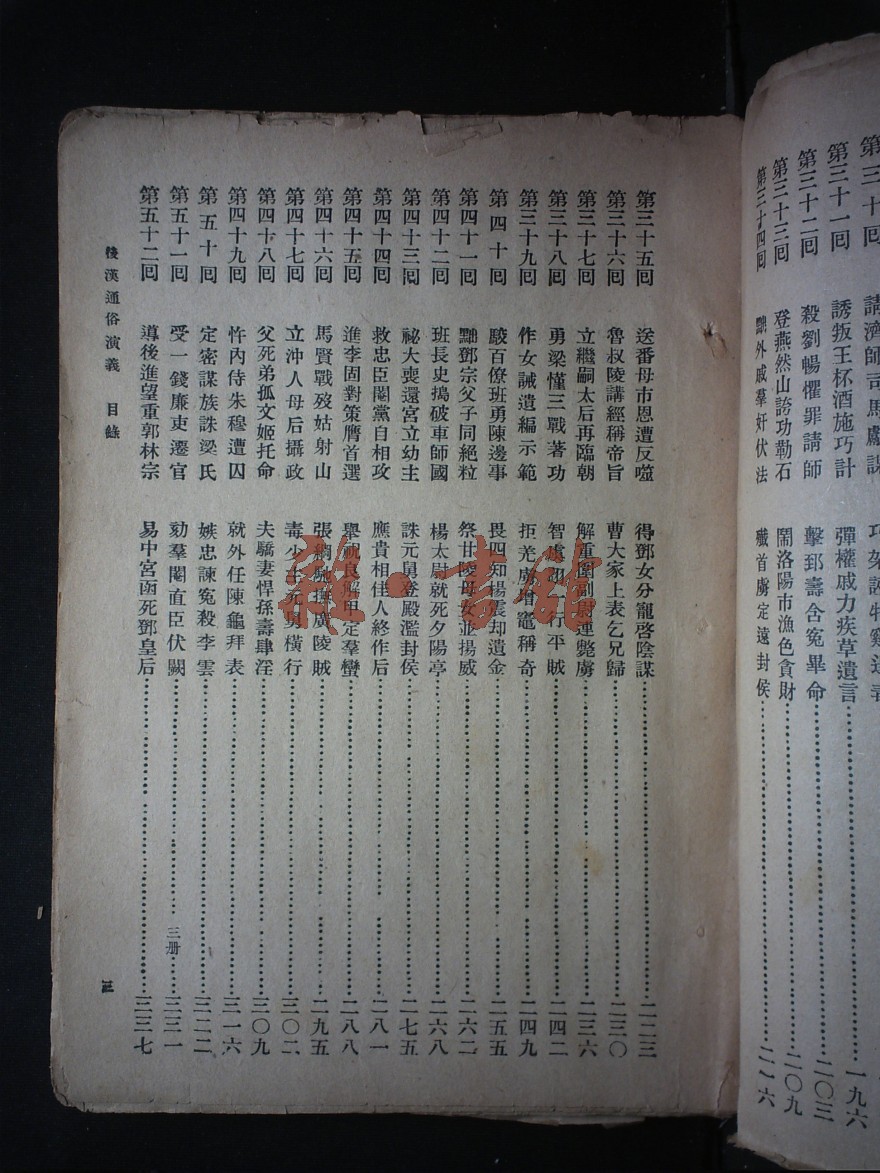 第三十回　請濟師司馬獻謀
第三十一回　誘叛王杯酒施巧計　彈權戚力疾草遺言……一九六
第三十二回　殺劉暢懼罪請師　擊郅壽含冤畢命……二〇三
第三十三回　登燕然山誇功勒石　鬧洛陽市漁色貪財……二〇九
第三十四回　黜外戚羣奸伏法　殲首虜定遠封侯……二一六
第三十五回　送番母市恩遭反噬　得鄧女分寵啓陰謀……二二三
第三十六回　魯叔陵講經稱帝旨　曹大家上表乞兄歸……二三〇
第三十七回　立繼嗣太后再臨朝　解重圍副尉連斃虜……二三六
第三十八回　勇梁慬三戰著功　智虞詡一行平賊……二四二
第三十九回　作女誡遺編示範　拒羌虜增竈稱奇……二四九
第四十回　駁百僚班勇陳邊事　畏四知楊震却遺金……二五五
第四十一回　黜鄧宗父子同絕粒　祭甘陵母女並揚威……二六二
第四十二回　班長史搗破車師國　楊太尉就死夕陽亭……二六八
第四十三回　祕大喪還宮立幼主　誅元舅登殿濫封侯……二七五
第四十四回　救忠臣閹黨自相攻　應貴相佳人終作后……二八一
第四十五回　進李固對策膺首選　舉祝良解甲定羣蠻……二八八
第四十六回　馬賢戰歿姑射山　張綱馳撫廣陵賊……二九五
第四十七回　立沖人母后攝政　毒少主元舅橫行……三〇二
第四十八回　父死弟孤文姬托命　夫驕妻悍孫壽肆淫……三〇九
第四十九回　忤內侍朱穆遭囚　就外任陳龜拜表……三一六
第五十回　定密謀族誅梁氏　嫉忠諫冤殺李雲……三二二
第五十一回　受一錢廉吏遷官　劾羣閹直臣伏闕……三三一
第五十二回　導後進望重郭林宗　易中宮函死鄧皇后……三三七
後漢通俗演義　目錄　三册　三
雜·書館